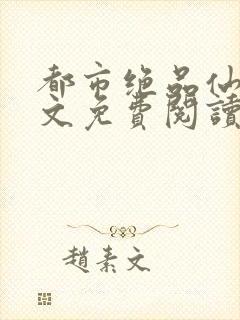 都市绝品仙
文免費閱讀
趙素文